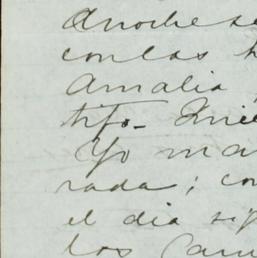 Anoche se
con las h
Amalia
tifo. Knie
Yo ma
rada; co
el dia sig
los Cam